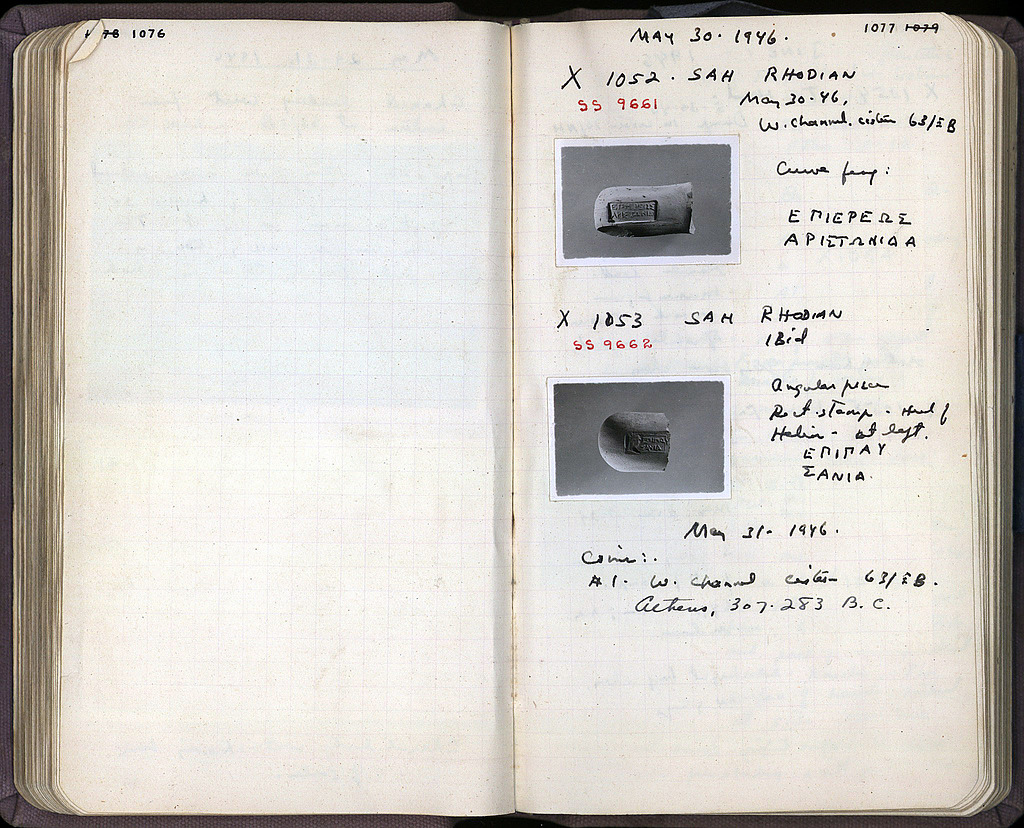 1078 1076
1077 1079
MAY 30 · 1946.
X 1052 · SAH RHODIAN
SS 9661
May 30·46,
W. channel. cistern 63/ΣΒ
Curve frag:
ΕΠΙΕΡΕΩΣ
ΑΡΙΣΤΩΝΙΔΑ
X 1053 SAH RHODIAN
SS 9662
Ibid
Angular piece
Rect. stamp - Head of
Helios - at left.
ΕΠΙΠΑΥ
ΣΑΝΙΑ.
May 31 - 1946.
Coins:.
#1. W. channel cistern 63/ΣΒ.
Athens, 307-283 B.C.